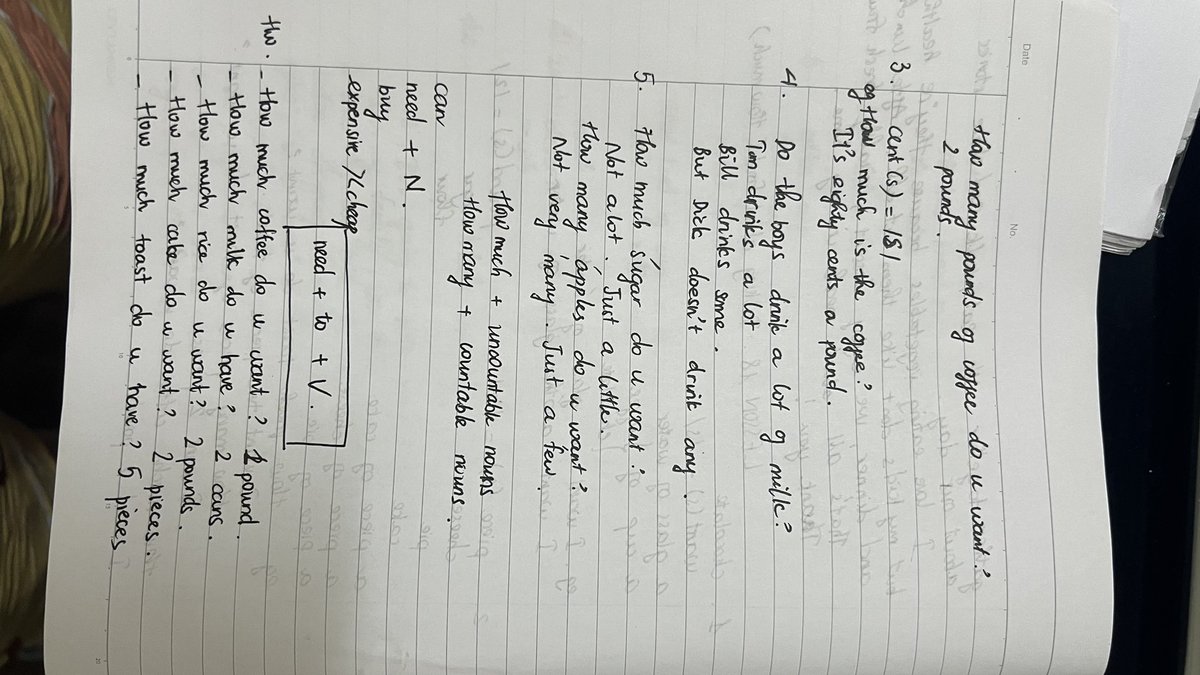 Date
No.
How many pounds of coffee do u want?
2 pounds.
3. cent(s) = /s/
eg How much is the coffee?
It's eighty cents a pound.
4. Do the boys drink a lot of milk?
Tom drinks a lot
Bill drinks some.
But Dick doesn't drink any.
5. How much sugar do u want?
Not a lot. Just a little.
How many apples do u want?
Not very many. Just a few.
How much + uncountable nouns
How many + countable nouns.
can
need + N.
buy
expensive >< cheap
need + to + V.
- How much coffee do u want? 1 pound.
- How much milk do u have? 2 cans.
- How much rice do u want? 2 pounds.
- How much cake do u want? 2 pieces.
- How much toast do u have? 5 pieces